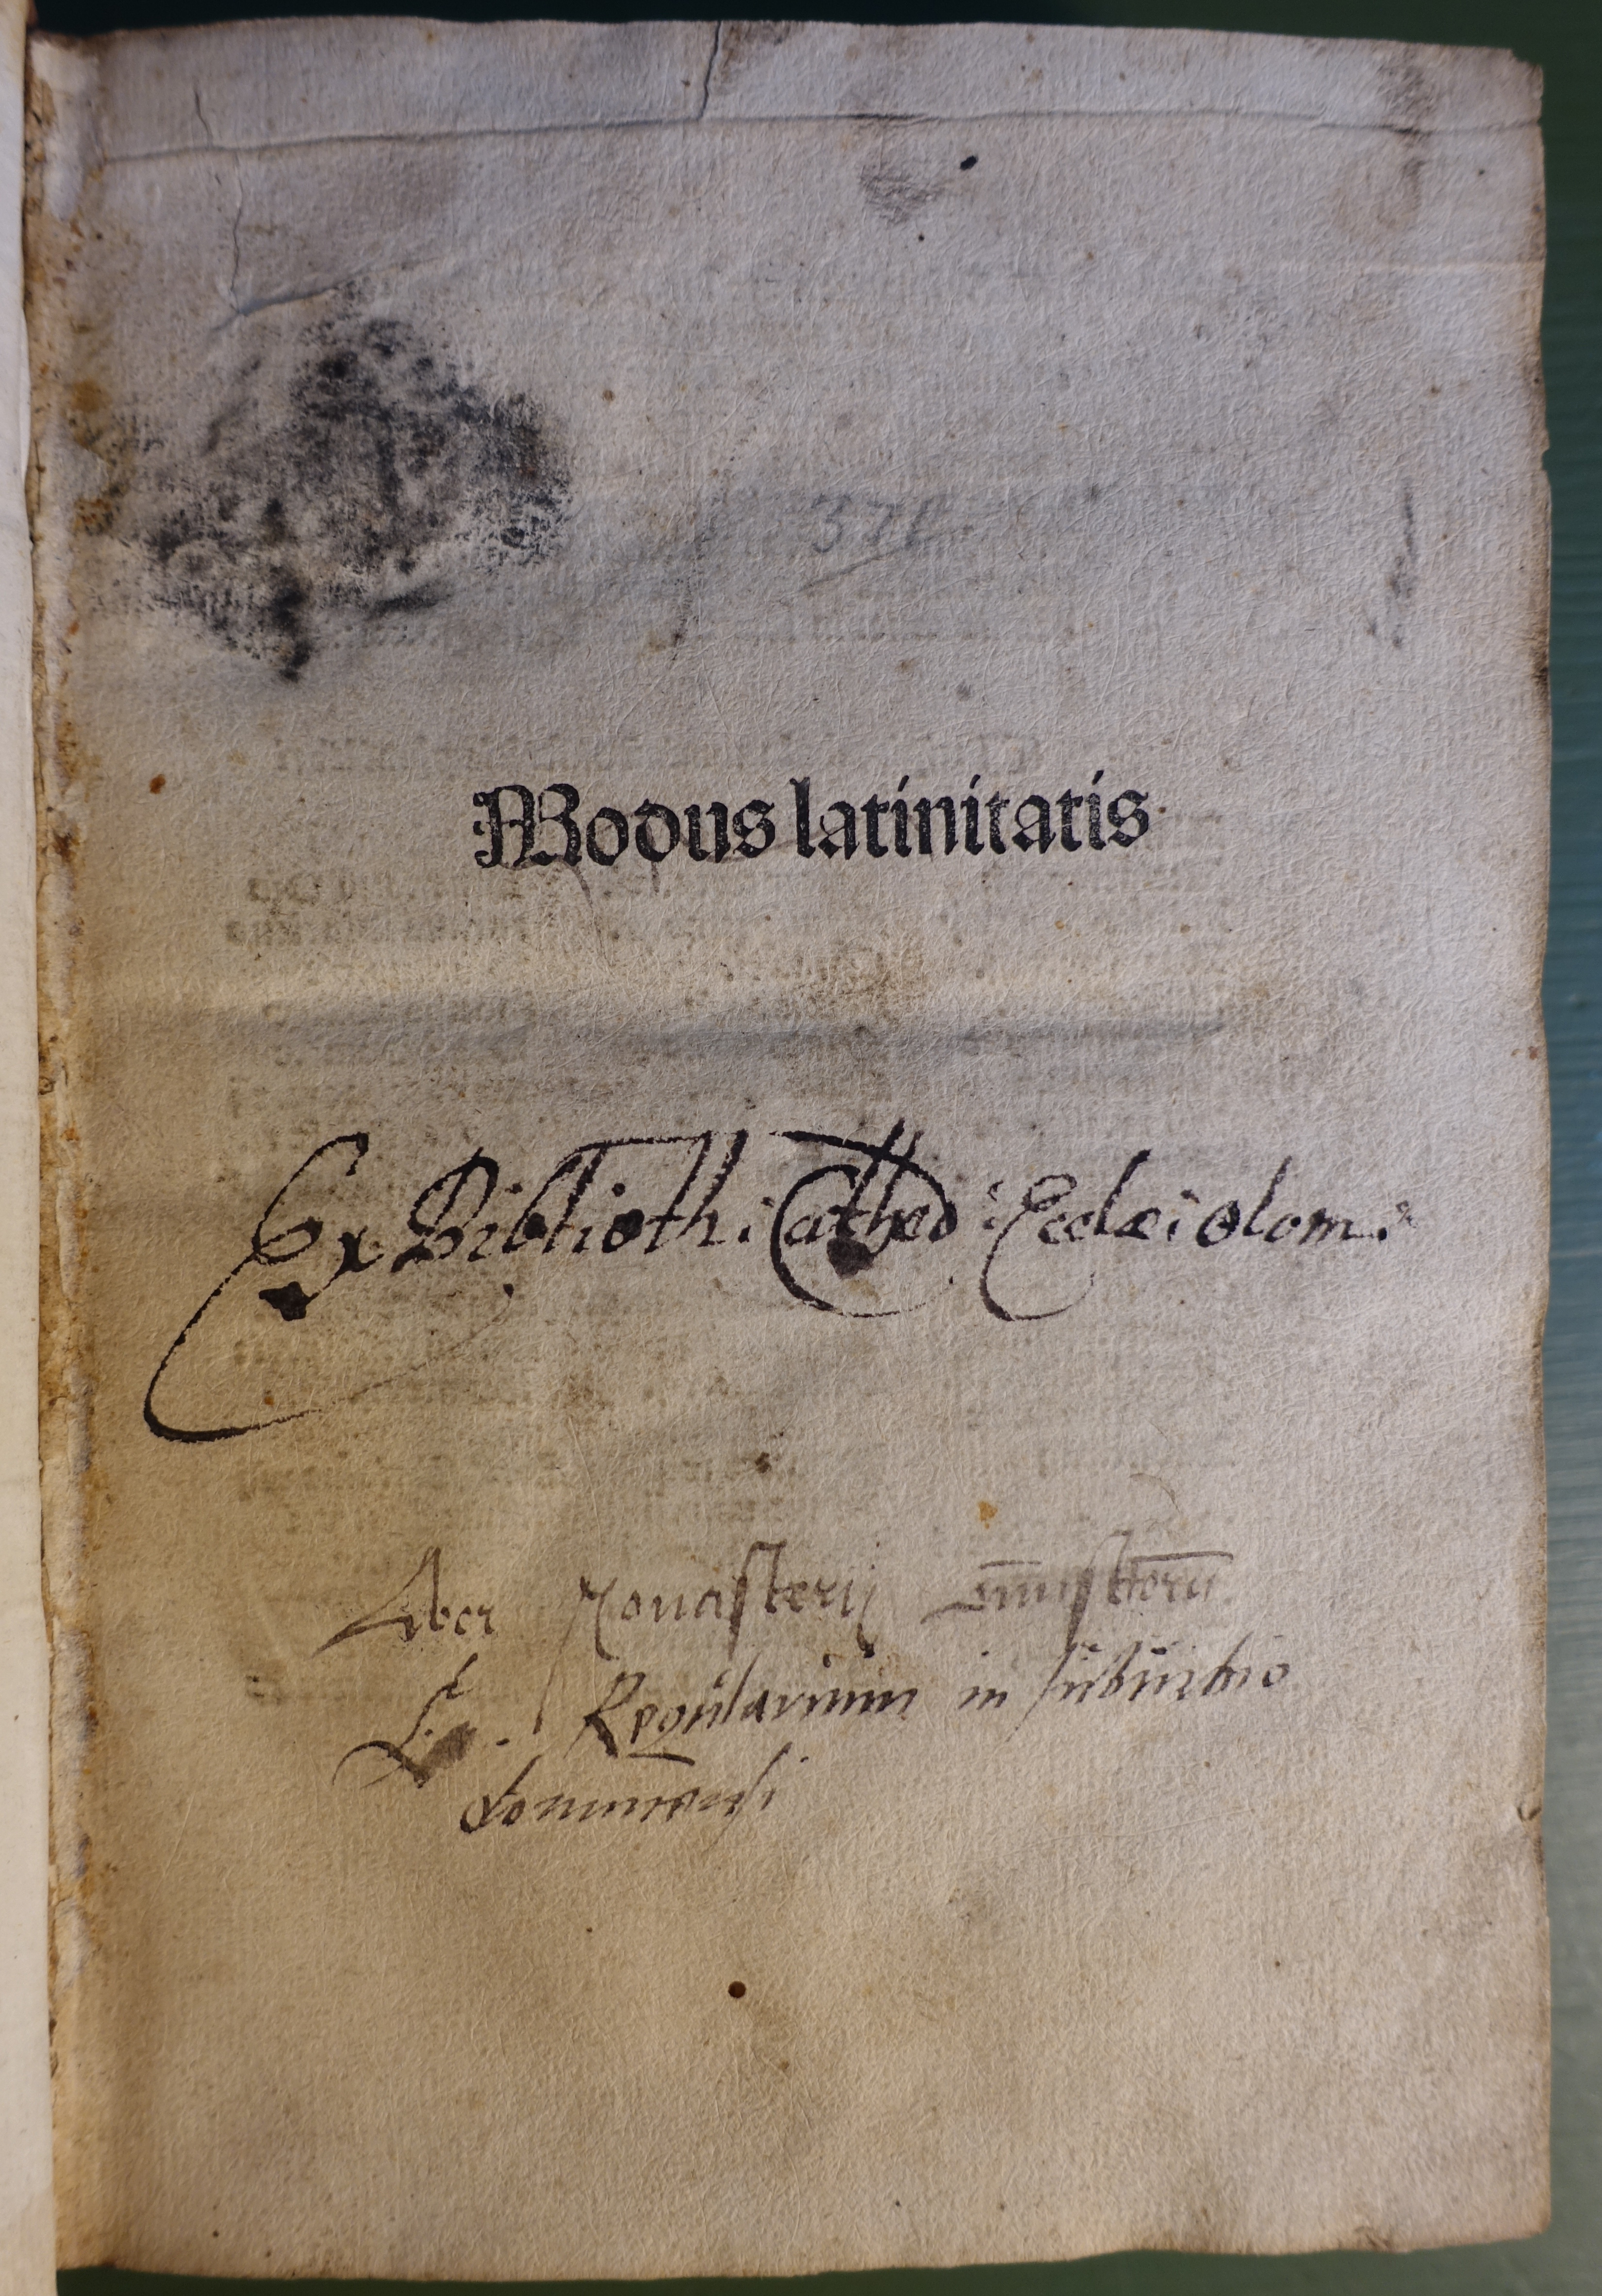 371
Modus latinitatis
Ex Biblioth: Cathed: Eccles: olom:
Liber Monasterij omniu storu
C. Regularium in suburbio